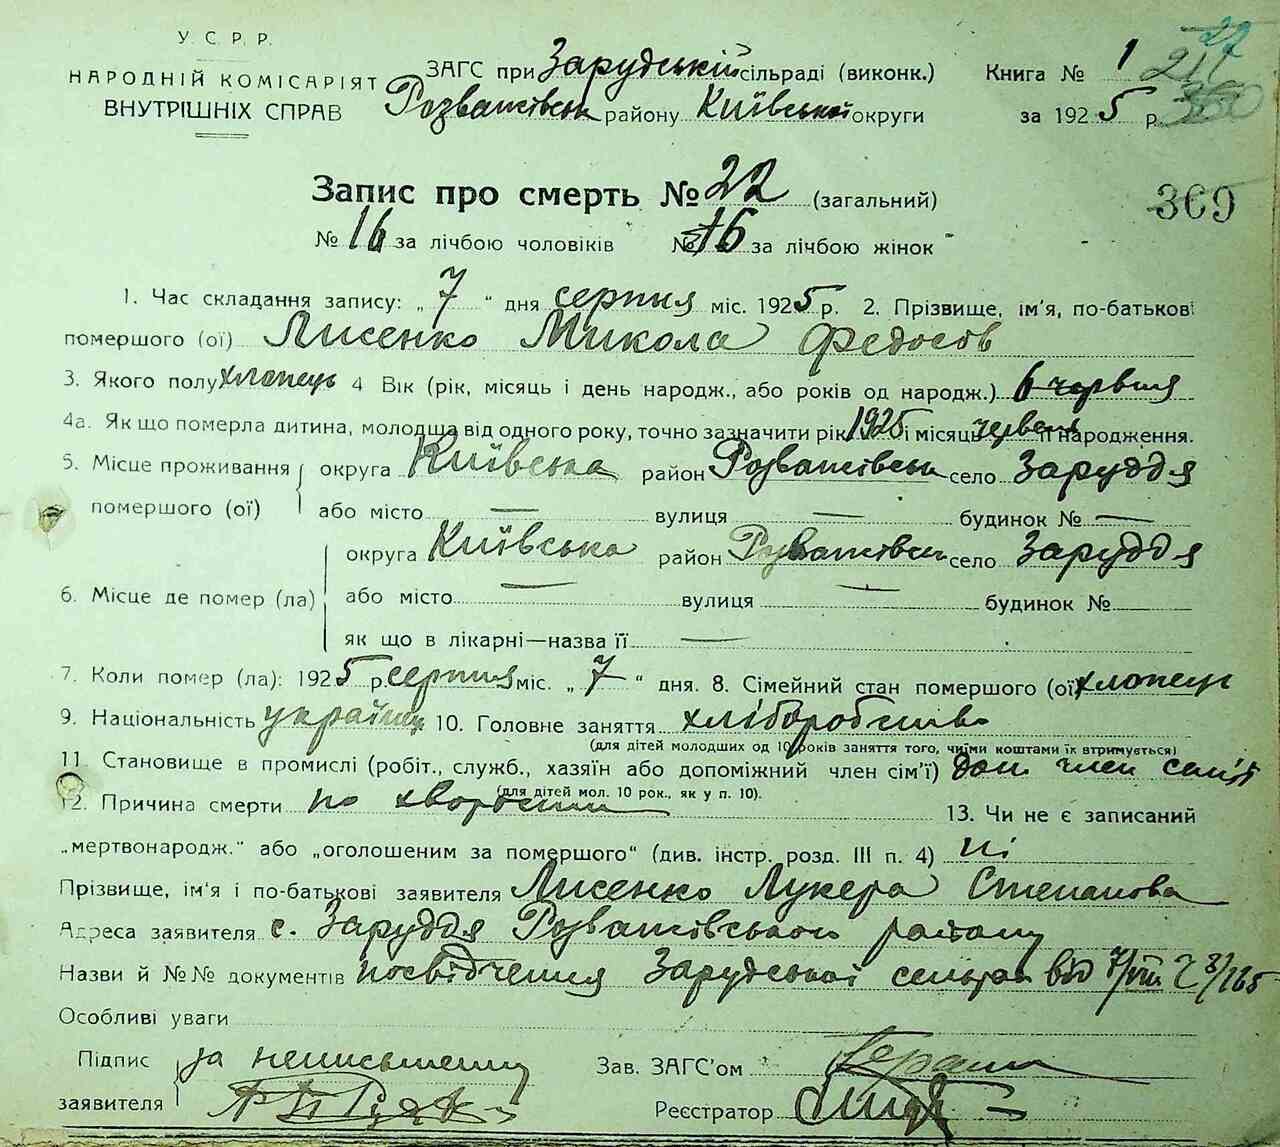 У.С.Р.Р.
НАРОДНІЙ КОМІСАРІЯТ
ВНУТРІШНІХ СПРАВ
ЗАГС при Зарудській сільраді (виконк.)
Розважівськ району Київської округи
Книга № 1
за 1925 р.
27
217
350
369
Запис про смерть № 22 (загальний)
№ 16 за лічбою чоловіків № 16 за лічбою жінок
1. Час складання запису: „ 7 “ дня серпня міс. 1925 р. 2. Прізвище, ім'я, по-батькові
помершого (ої) Лисенко Микола Федосів
3. Якого полу хлопець 4 Вік (рік, місяць і день народж., або років од народж.) 6 червня
4а. Як що померла дитина, молодша від одного року, точно зазначити рік 1925 і місяць червень її народження.
5. Місце проживання округа Київська район Розважівськ село Заруддя
помершого (ої) або місто — вулиця — будинок № —
округа Київська район Розважівськ село Заруддя
6. Місце де помер (ла) або місто — вулиця — будинок №
як що в лікарні—назва її —
7. Коли помер (ла): 1925 р. серпня міс. „ 7 “ дня. 8. Сімейний стан помершого (ої) хлопець
9. Національність українець 10. Головне заняття хліборобство
(для дітей молодших од 10 років заняття того, чиїми коштами їх втримується)
11. Становище в промислі (робіт., служб., хазяїн або допоміжний член сім'ї) доп. член сем'ї
(для дітей мол. 10 рок., як у п. 10).
12. Причина смерти по хворости 13. Чи не є записаний
„мертвонародж.“ або „оголошеним за помершого“ (див. інстр. розд. III п. 4) ні
Прізвище, ім'я і по-батькові заявителя Лисенко Лукера Степанова
Адреса заявителя с. Заруддя Розважівського району
Назви й №№ документів посвідчення Зарудської сельради від 7/VIII Ч 8/165
Особливі уваги
Підпис за неписьменну Зав. ЗАГС'ом
заявителя Реєстратор